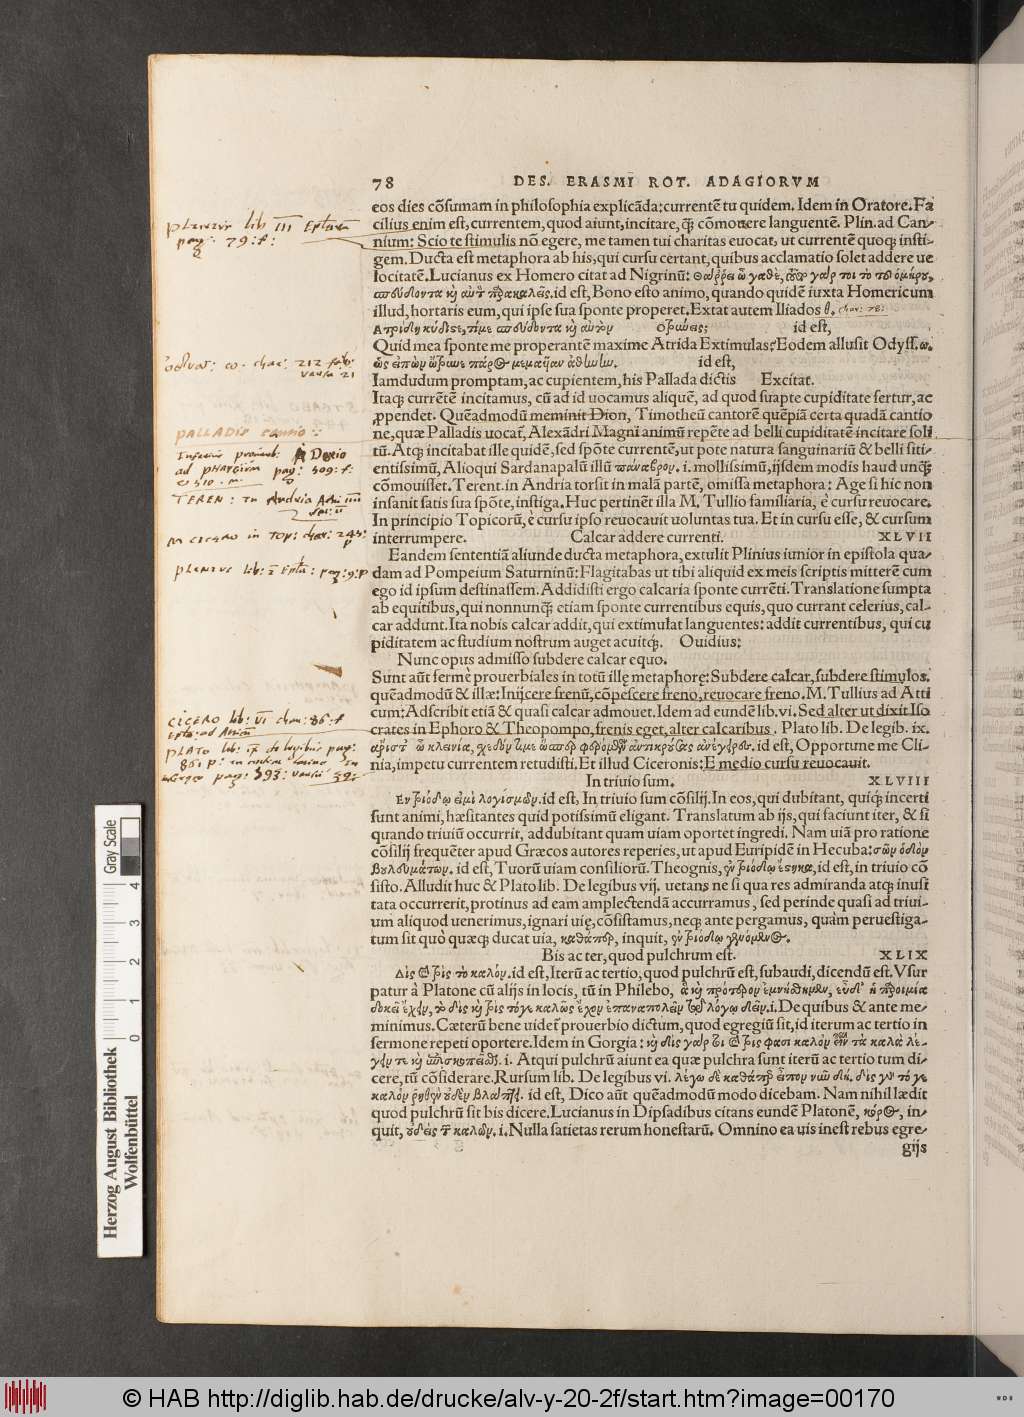 78 DES. ERASMI ROT. ADAGIORVM
eos dies cõsumam in philosophia explicãda: currentẽ tu quidem. Idem in Oratore. Fa
cilius enim est, currentem, quod aiunt, incitare, q̃ cõmouere languentẽ. Plin. ad Can-
nium: Scio te stimulis nõ egere, me tamen tui charitas euocat, ut currentẽ quoq; insti-
gem. Ducta est metaphora ab his, qui cursu certant, quibus acclamatio solet addere ue
locitatẽ. Lucianus ex Homero citat ad Nigrinũ:
id est, Bono esto animo, quando quidẽ iuxta Homericum
illud, hortaris eum, qui ipse sua sponte properet. Extat autem Iliados θ. char: 78:
id est,
Quid mea sponte me properantẽ maxime Atrida Extimulas? Eodem allusit Odyss. ω.
id est,
Iamdudum promptam, ac cupientem, his Pallada dictis Excitat.
Itaq; currẽtẽ incitamus, cũ ad id uocamus aliquẽ, ad quod suapte cupiditate fertur, ac
ppendet. Quẽadmodũ meminit Dion, Timotheũ cantorẽ quẽpiã certa quadã cantio
ne, quæ Palladis uocat̃, Alexãdri Magni animũ repẽte ad belli cupiditatẽ incitare soli
tũ. Atq; incitabat ille quidẽ, sed spõte currentẽ, ut pote natura sanguinariũ & belli siti-
entissimũ, Alioqui Sardanapalũ illũ πάναβρον. i. mollissimũ, ijsdem modis haud unq̃
cõmouisset. Terent. in Andria torsit in malã partẽ, omissa metaphora: Age si hic non
insanit satis sua spõte, instiga. Huc pertinẽt illa M. Tullio familiaria, è cursu reuocare.
In principio Topicorũ, è cursu ipso reuocauit uoluntas tua. Et in cursu esse, & cursum
interrumpere. Calcar addere currenti. XLVII
Eandem sententiã aliunde ducta metaphora, extulit Plinius iunior in epistola qua-
dam ad Pompeium Saturninũ: Flagitabas ut tibi aliquid ex meis scriptis mitterẽ cum
ego id ipsum destinassem. Addidisti ergo calcaria sponte currẽti. Translatione sumpta
ab equitibus, qui nonnunq̃ etiam sponte currentibus equis, quo currant celerius, cal-
car addunt. Ita nobis calcar addit, qui extimulat languentes: addit currentibus, qui cu
piditatem ac studium nostrum auget acuitq;. Ouidius:
Nunc opus admisso subdere calcar equo.
Sunt aũt fermè prouerbiales in totũ illę metaphorę: Subdere calcar, subdere stimulos.
quẽadmodũ & illæ: Inijcere frenũ, cõpescere freno, reuocare freno. M. Tullius ad Atti
cum: Adscribit etiã & quasi calcar admouet. Idem ad eundẽ lib. vi. Sed alter ut dixit Iso
crates in Ephoro & Theopompo, frenis eget, alter calcaribus. Plato lib. De legib. ix.
id est, Opportune me Cli-
nia, impetu currentem retudisti. Et illud Ciceronis: E medio cursu reuocauit.
In triuio sum. XLVIII
Ἐν τριόδῳ εἰμὶ λογισμῶν. id est, In triuio sum cõsilij. In eos, qui dubitant, quiq; incerti
sunt animi, hæsitantes quid potissimũ eligant. Translatum ab ijs, qui faciunt iter, & si
quando triuiũ occurrit, addubitant quam uiam oportet ingredi. Nam uiã pro ratione
cõsilij frequẽter apud Græcos autores reperies, ut apud Euripidẽ in Hecuba: σῶν ὁδὸν
βουλευμάτων. id est, Tuorũ uiam consiliorũ. Theognis, ἐν τριόδῳ ἕστηκα, id est, in triuio cõ
sisto. Alludit huc & Plato lib. De legibus vij. uetans ne si qua res admiranda atq; inusi
tata occurrerit, protinus ad eam amplectendã accurramus, sed perinde quasi ad triui-
um aliquod uenerimus, ignari uię, cõsistamus, neq; ante pergamus, quàm peruestiga-
tum sit quò quæq; ducat uia, καθάπερ, inquit, ἐν τριόδῳ γενόμενος.
Bis ac ter, quod pulchrum est. XLIX
Δὶς καὶ τρὶς τὸ καλόν. id est, Iterũ ac tertio, quod pulchrũ est, subaudi, dicendũ est. Vsur
patur à Platone cũ alijs in locis, tũ in Philebo,
i. De quibus & ante me-
minimus. Cæterũ bene uidet̃ prouerbio dictum, quod egregiũ sit, id iterum ac tertio in
sermone repeti oportere. Idem in Gorgia:
i. Atqui pulchrũ aiunt ea quæ pulchra sunt iterũ ac tertio tum di-
cere, tũ cõsiderare. Rursum lib. De legibus vi.
id est, Dico aũt quẽadmodũ modo dicebam. Nam nihil lædit
quod pulchrũ sit bis dicere. Lucianus in Dipsadibus citans eundẽ Platonẽ, κόρος, in-
quit, οὐδεὶς τῶν καλῶν. i. Nulla satietas rerum honestarũ. Omnino ea uis inest rebus egre-
gijs
plinius lib III
pag: 79: f:
odyss: ω. char: 212
PALLADIS cantio:
ad pag: 509: f:
TEREN: in Andria
M CICERO in Top: char: 245:
PLINIUS lib: 2 Epla: pag: 9: p
CICERO lib: VI char: 86: f
Epla: ad Atticum
PLATO lib: 9 de legibus pag:
861 p:
pag: 393:
Gray Scale
0 1 2 3 4
Herzog August Bibliothek
Wolfenbüttel
© HAB http://diglib.hab.de/drucke/alv-y-20-2f/start.htm?image=00170